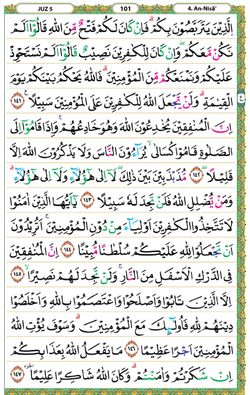 JUZ 5 101 4. An-Nisā'
الَّذِيْنَ يَتَرَبَّصُوْنَ بِكُمْۗ فَاِنْ كَانَ لَكُمْ فَتْحٌ مِّنَ اللّٰهِ قَالُوْٓا اَلَمْ
نَكُنْ مَّعَكُمْۖ وَاِنْ كَانَ لِلْكٰفِرِيْنَ نَصِيْبٌ قَالُوْٓا اَلَمْ نَسْتَحْوِذْ
عَلَيْكُمْ وَنَمْنَعْكُمْ مِّنَ الْمُؤْمِنِيْنَۗ فَاللّٰهُ يَحْكُمُ بَيْنَكُمْ يَوْمَ
الْقِيٰمَةِۗ وَلَنْ يَّجْعَلَ اللّٰهُ لِلْكٰفِرِيْنَ عَلَى الْمُؤْمِنِيْنَ سَبِيْلًا ۝١٤١
اِنَّ الْمُنٰفِقِيْنَ يُخٰدِعُوْنَ اللّٰهَ وَهُوَ خَادِعُهُمْۚ وَاِذَا قَامُوْٓا اِلَى
الصَّلٰوةِ قَامُوْا كُسَالٰىۙ يُرَاۤءُوْنَ النَّاسَ وَلَا يَذْكُرُوْنَ اللّٰهَ اِلَّا
قَلِيْلًا ۝١٤٢ مُّذَبْذَبِيْنَ بَيْنَ ذٰلِكَۖ لَآ اِلٰى هٰٓؤُلَاۤءِ وَلَآ اِلٰى هٰٓؤُلَاۤءِۗ
وَمَنْ يُّضْلِلِ اللّٰهُ فَلَنْ تَجِدَ لَهٗ سَبِيْلًا ۝١٤٣ يٰٓاَيُّهَا الَّذِيْنَ اٰمَنُوْا
لَا تَتَّخِذُوا الْكٰفِرِيْنَ اَوْلِيَاۤءَ مِنْ دُوْنِ الْمُؤْمِنِيْنَۚ اَتُرِيْدُوْنَ
اَنْ تَجْعَلُوْا لِلّٰهِ عَلَيْكُمْ سُلْطٰنًا مُّبِيْنًا ۝١٤٤ اِنَّ الْمُنٰفِقِيْنَ
فِى الدَّرْكِ الْاَسْفَلِ مِنَ النَّارِۚ وَلَنْ تَجِدَ لَهُمْ نَصِيْرًا ۝١٤٥
اِلَّا الَّذِيْنَ تَابُوْا وَاَصْلَحُوْا وَاعْتَصَمُوْا بِاللّٰهِ وَاَخْلَصُوْا
دِيْنَهُمْ لِلّٰهِ فَاُولٰۤىِٕكَ مَعَ الْمُؤْمِنِيْنَۗ وَسَوْفَ يُؤْتِ اللّٰهُ
الْمُؤْمِنِيْنَ اَجْرًا عَظِيْمًا ۝١٤٦ مَا يَفْعَلُ اللّٰهُ بِعَذَابِكُمْ
اِنْ شَكَرْتُمْ وَاٰمَنْتُمْۗ وَكَانَ اللّٰهُ شَاكِرًا عَلِيْمًا ۝١٤٧